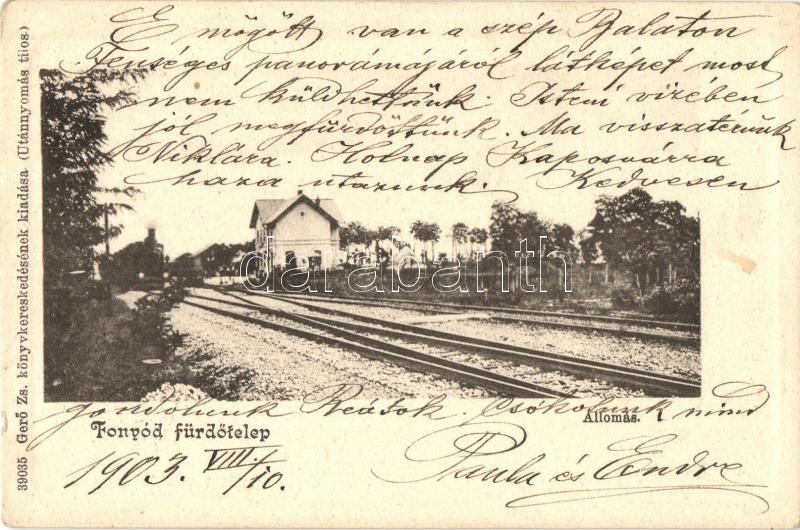 E mögött van a szép Balaton
Fenséges panorámájáról látképet most
nem küldhettünk. Isteni vizében
jól megfürdöttünk. Ma visszatérünk
Niklára. Holnap Kaposvárra
haza utazunk. Kedvesen
gondolunk Reátok. Csókolunk mind
Paula és Endre
1903. VIII./10.
Fonyód fürdőtelep
Állomás.
39035 Gerő Zs. könyvkereskedésének kiadása. (Utánnyomás tilos.)
darabanth